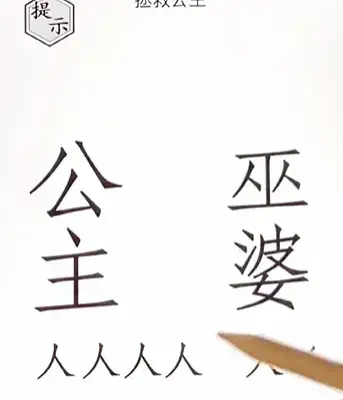 提示
拯救公主
公主
巫婆
人人人人